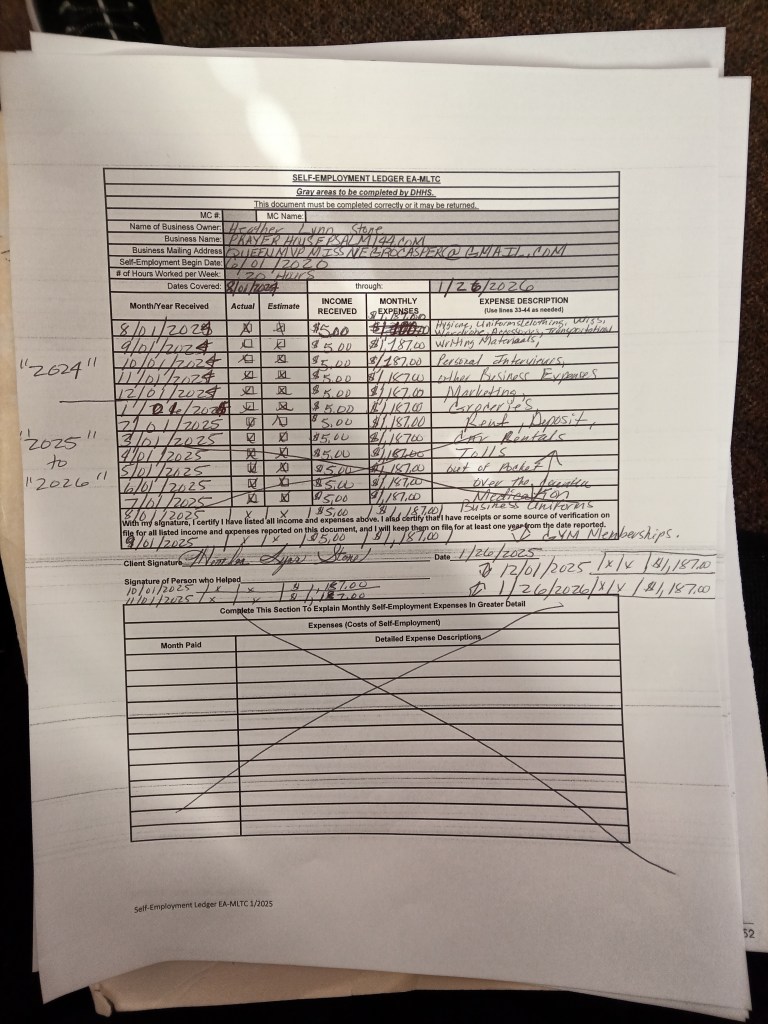 SELF-EMPLOYMENT LEDGER EA-MLTC
Gray areas to be completed by DHHS.
This document must be completed correctly or it may be returned.
MC #: MC Name:
Name of Business Owner: Heather Lynn Stone
Business Name: PRAYERHOUSEPSALM144.COM
Business Mailing Address QUEENMVPMISSNEGROCASPER@GMAIL.COM
Self-Employment Begin Date: 6/01/2020
# of Hours Worked per Week: 20 Hours
Dates Covered: 8/01/2024 through: 1/26/2026
Month/Year Received Actual Estimate INCOME RECEIVED MONTHLY EXPENSES EXPENSE DESCRIPTION
(Use lines 33-44 as needed)
$1,187.00
8/01/2024 X X $5.00 Hygiene, Uniforms, clothing, Wigs,
Wardrobe, Accessories, Transportation
9/01/2024 X X $5.00 $1,187.00 Writing Materials,
"2024"
10/01/2024 X X $5.00 $1,187.00 Personal Interviews,
11/01/2024 X X $5.00 $1,187.00 other Business Expenses
12/01/2024 X X $5.00 $1,187.00 Marketing,
1/ 2025 X X $5.00 $1,187.00 Groceries
2/01/2025 X X $5.00 $1,187.00 Rent, Deposit,
"2025"
to
"2026"
3/01/2025 X X $5.00 $1,187.00 Car Rentals
4/01/2025 X X $5.00 $1,187.00 Tolls
5/01/2025 X X $5.00 $1,187.00 out of Pocket
6/01/2025 X X $5.00 $1,187.00 over the counter
7/01/2025 X X $5.00 $1,187.00 Medication
8/01/2025 X X $5.00 $1,187.00 Business Uniforms
With my signature, I certify I have listed all income and expenses above. I also certify that I have receipts or some source of verification on
file for all listed income and expenses reported on this document, and I will keep them on file for at least one year from the date reported.
9/01/2025 X X $5.00 $1,187.00 GYM Memberships.
Client Signature Heather Lynn Stone Date 1/26/2025
12/01/2025 /x/x/$1,187.00
Signature of Person who Helped
10/01/2025 / x / x $1,187.00
1/26/2026/x/x/$1,187.00
11/01/2025 / x / x $1,187.00
Complete This Section To Explain Monthly Self-Employment Expenses In Greater Detail
Expenses (Costs of Self-Employment)
Month Paid Detailed Expense Descriptions
Self-Employment Ledger EA-MLTC 1/2025
52